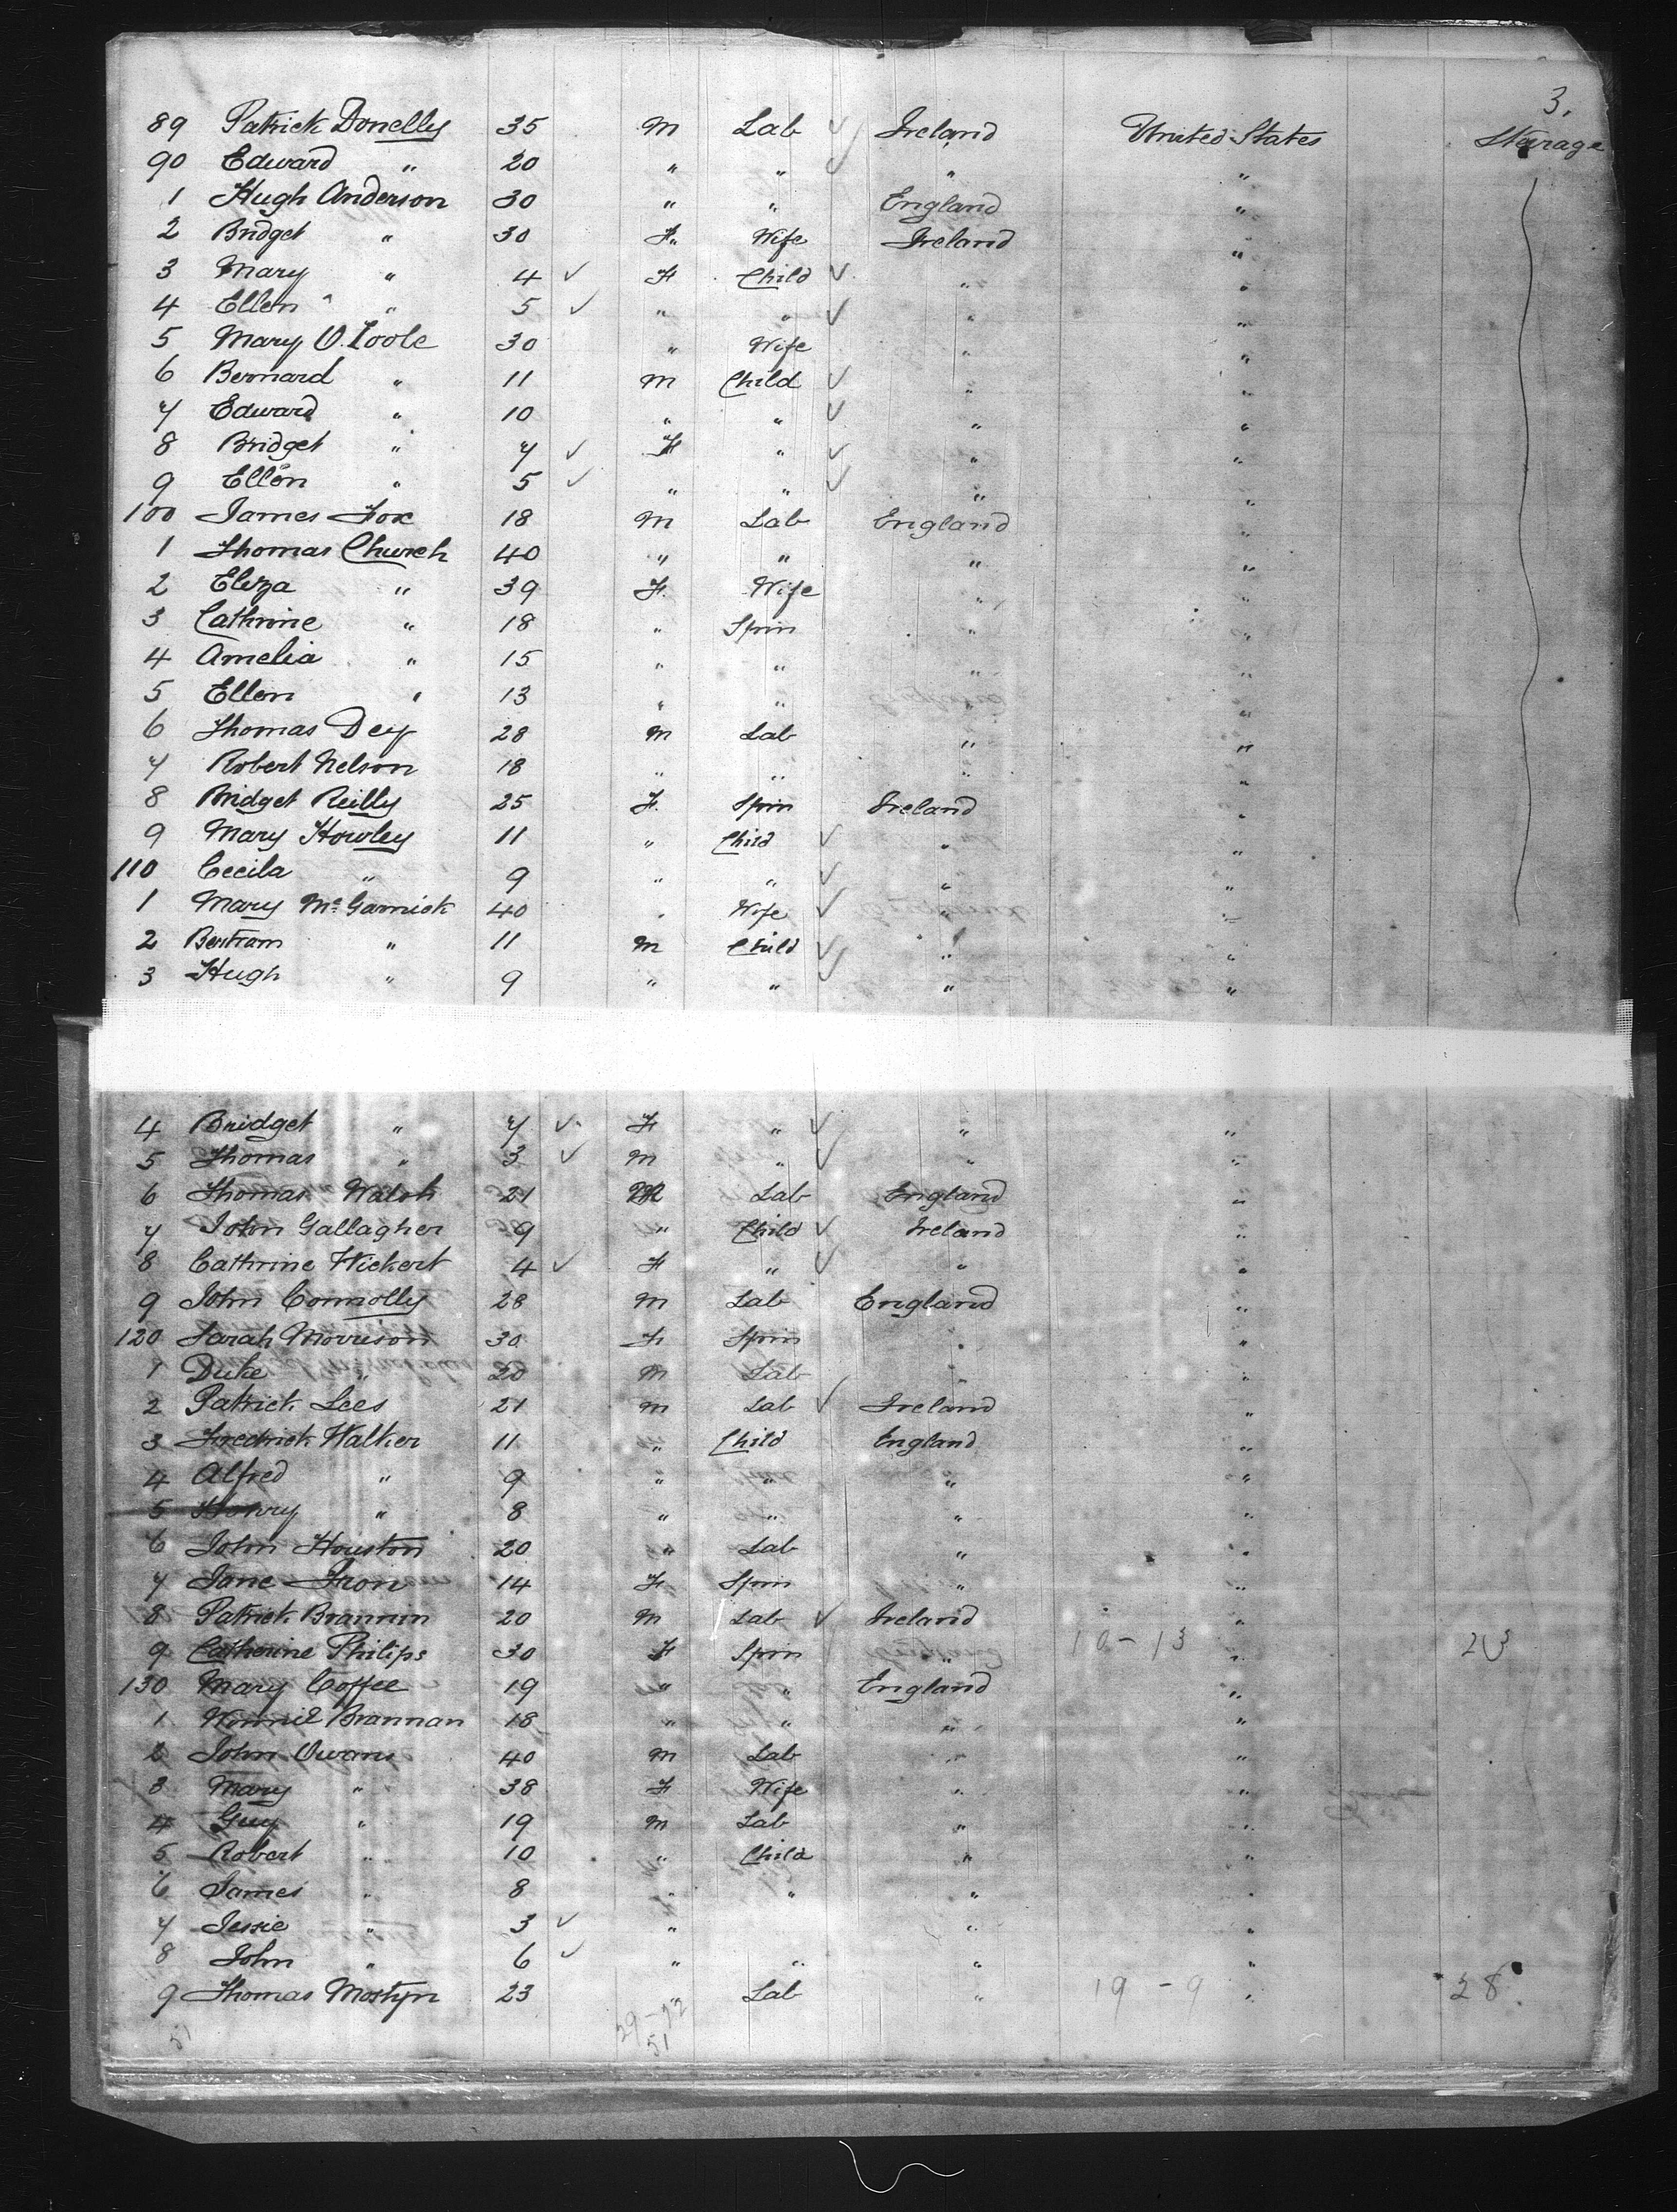 3.
89 Patrick Donelly 35 M Lab ✓ Ireland United States Steerage
90 Edward " 20 " " ✓ " "
1 Hugh Anderson 30 " " England "
2 Bridget " 30 F. Wife Ireland "
3 Mary " 4 ✓ F Child ✓ " "
4 Ellen " 5 ✓ " " ✓ " "
5 Mary O.Toole 30 " Wife " "
6 Bernard " 11 M Child ✓ " "
7 Edward " 10 " " ✓ " "
8 Bridget " 7 ✓ F " ✓ " "
9 Ellen " 5 ✓ " " ✓ " "
100 James Fox 18 M Lab England "
1 Thomas Church 40 " " " "
2 Eliza " 39 F. Wife " "
3 Cathrine " 18 " Spin " "
4 Amelia " 15 " " " "
5 Ellen " 13 " " " "
6 Thomas Dey 28 M Lab " "
7 Robert Nelson 18 " " " "
8 Bridget Reilly 25 F. Spin Ireland "
9 Mary Howley 11 " Child ✓ " "
110 Cecila " 9 " " ✓ " "
1 Mary Mc Garnick 40 " Wife ✓ " "
2 Bertram " 11 M Child ✓ " "
3 Hugh " 9 " " ✓ " "
4 Bridget " 7 ✓ F " ✓ " "
5 Thomas " 3 ✓ M " ✓ " "
6 Thomas Walsh 21 M Lab England "
7 John Gallagher 9 " Child ✓ Ireland "
8 Cathrine Wickert 4 ✓ F " ✓ " "
9 John Connolly 28 M Lab England "
120 Sarah Morrison 30 F Spin " "
1 Duke " 20 M Lab " "
2 Patrick Lees 21 M Lab ✓ Ireland "
3 Fredrick Walker 11 " Child England "
4 Alfred " 9 " " " "
5 Henry " 8 " " " "
6 John Houston 20 " Lab " "
7 Jane Iron 14 F Spin " "
8 Patrick Brannin 20 M Lab ✓ Ireland "
9 Catherine Philips 30 F Spin " 10-13 "
130 Mary Coffee 19 " " England "
1 Winnie Brannan 18 " " " "
2 John Owans 40 M Lab " "
3 Mary " 38 F Wife " "
4 Guy " 19 M Lab " "
5 Robert " 10 " Child " "
6 James " 8 " " " "
7 Jessie " 3 ✓ " " "
8 John " 6 ✓ " " " "
9 Thomas Mostyn 23 " Lab " 19-9 " 28
51 29-72
51